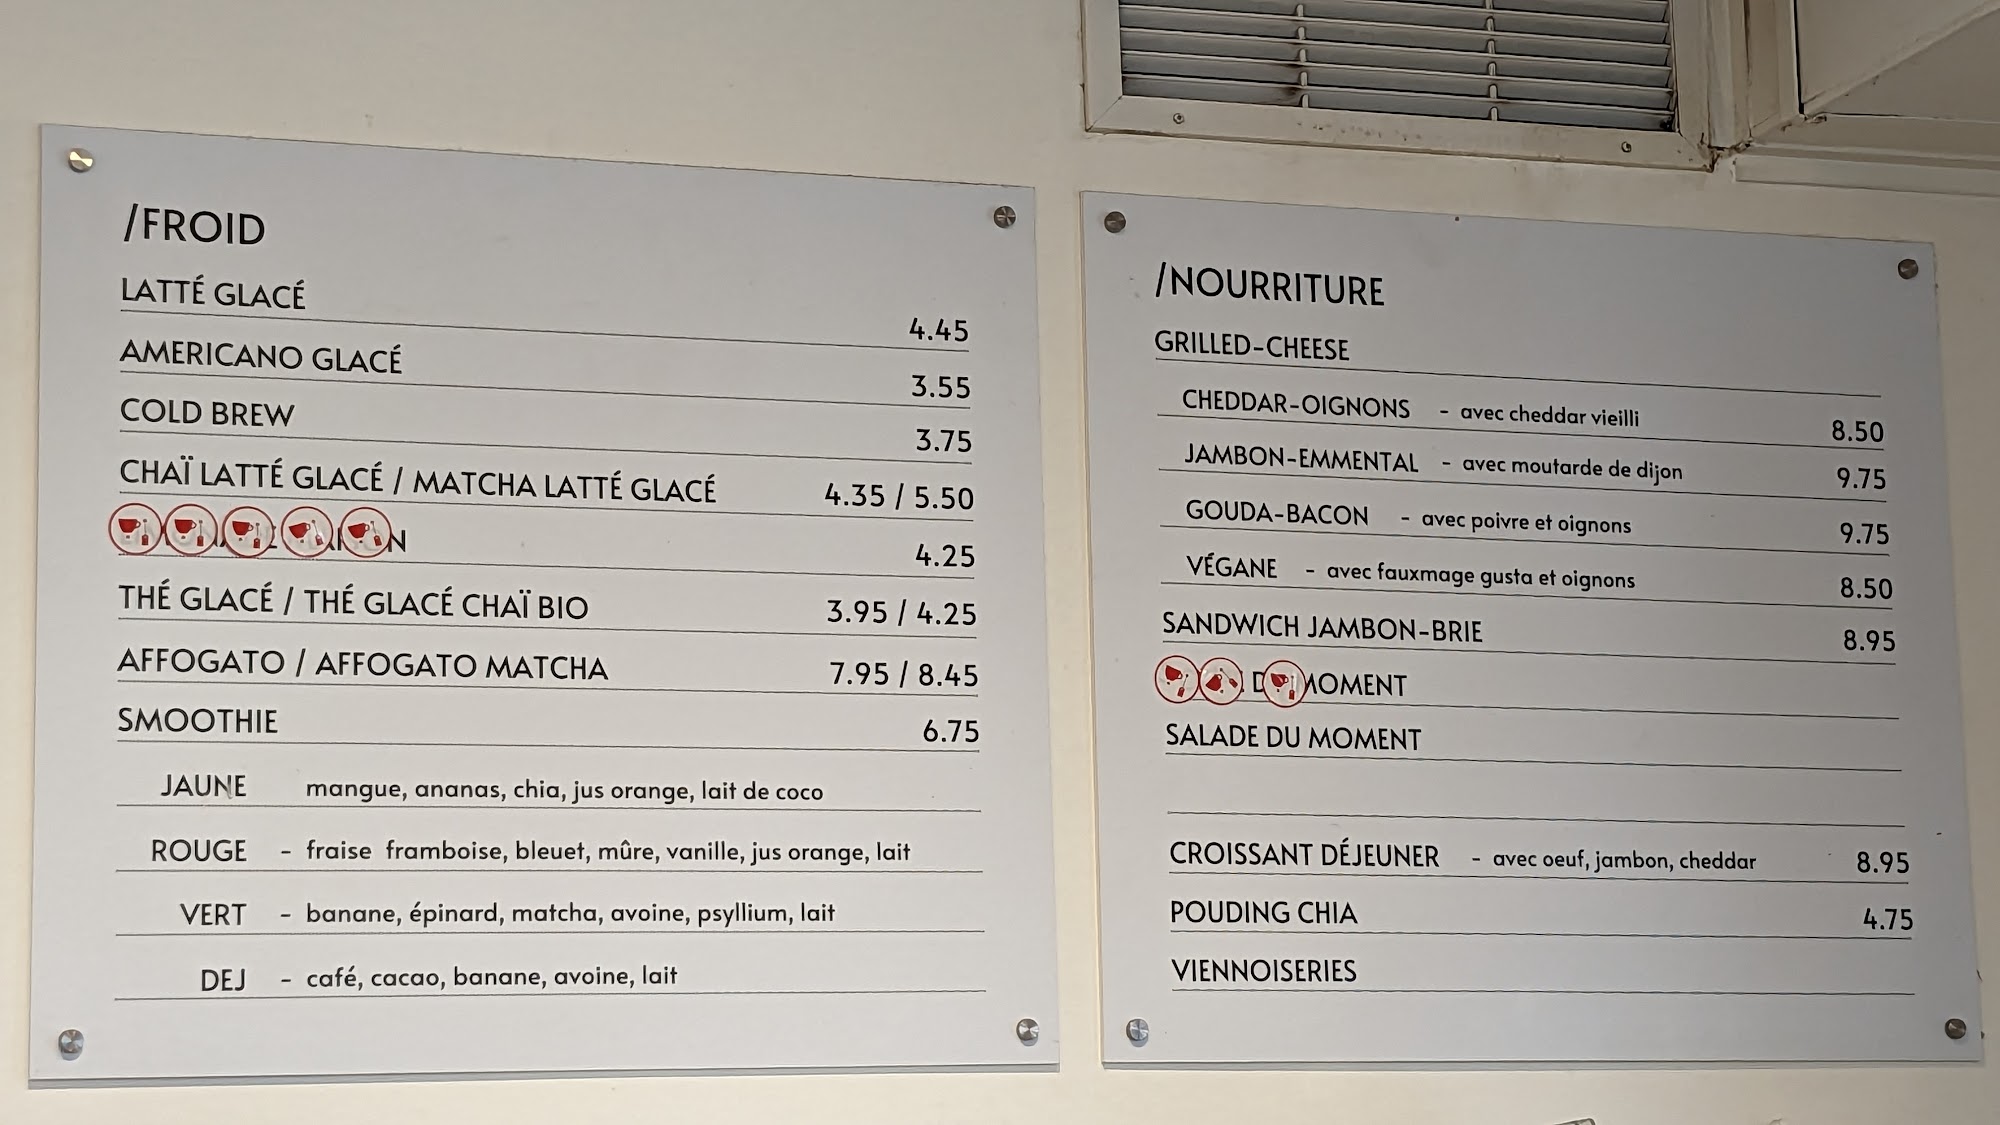 /FROID
LATTÉ GLACÉ 4.45
AMERICANO GLACÉ 3.55
COLD BREW 3.75
CHAÏ LATTÉ GLACÉ / MATCHA LATTÉ GLACÉ 4.35 / 5.50
4.25
THÉ GLACÉ / THÉ GLACÉ CHAÏ BIO 3.95 / 4.25
AFFOGATO / AFFOGATO MATCHA 7.95 / 8.45
SMOOTHIE 6.75
JAUNE mangue, ananas, chia, jus orange, lait de coco
ROUGE - fraise framboise, bleuet, mûre, vanille, jus orange, lait
VERT - banane, épinard, matcha, avoine, psyllium, lait
DEJ - café, cacao, banane, avoine, lait
/NOURRITURE
GRILLED-CHEESE
CHEDDAR-OIGNONS - avec cheddar vieilli 8.50
JAMBON-EMMENTAL - avec moutarde de dijon 9.75
GOUDA-BACON - avec poivre et oignons 9.75
VÉGANE - avec fauxmage gusta et oignons 8.50
SANDWICH JAMBON-BRIE 8.95
MOMENT
SALADE DU MOMENT
CROISSANT DÉJEUNER - avec oeuf, jambon, cheddar 8.95
POUDING CHIA 4.75
VIENNOISERIES